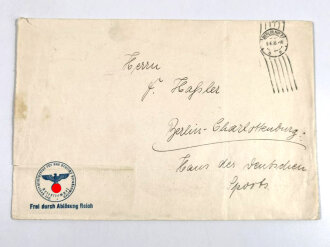 Herrn
F. Haßler
Berlin-Charlottenburg
Haus der Deutschen
Sports
Frei durch Ablösung Reich